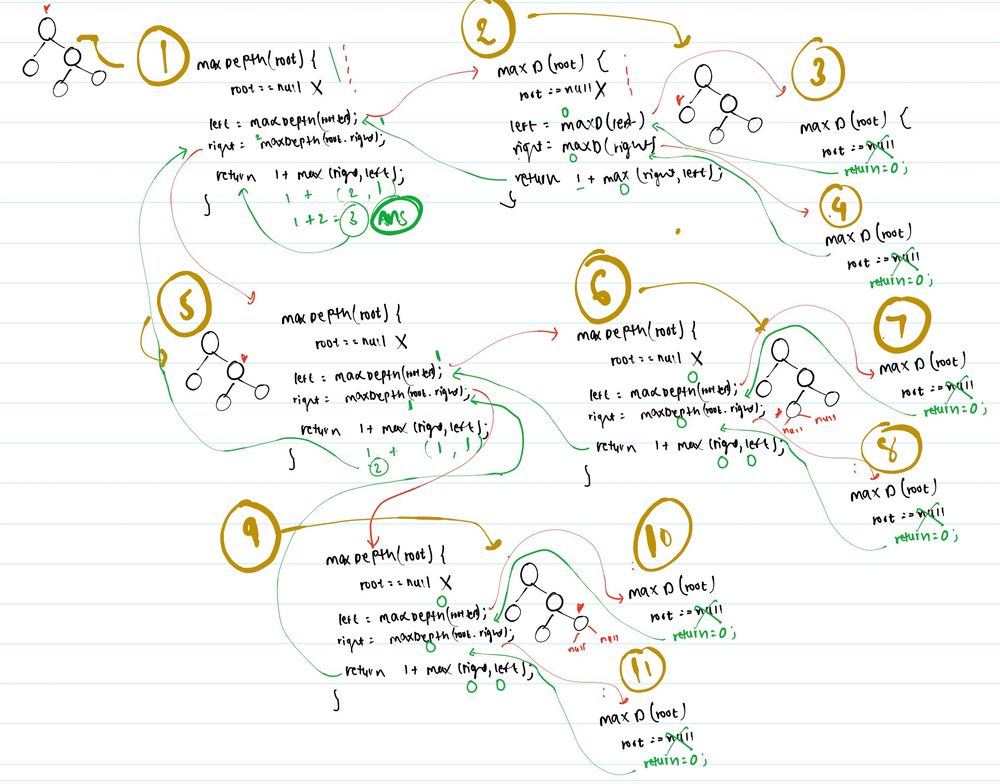 1
maxDepth(root) {
root==null X
left = maxDepth(root.left); 1
right = 2 maxDepth(root.right);
return 1+ max (right, left);
1 + (2, 1)
1+2 = 3 Ans
}
2
maxD(root) {
root ==null X
0
left = maxD(left)
right = maxD(right)
0
return 1 + max (right, left);
0
}
3
maxD(root) {
root ==null
return=0;
4
maxD(root)
root ==null
return=0;
5
maxDepth(root) {
root==null X
1
left = maxDepth(root.left);
right = maxDepth(root.right);
1
return 1+ max (right, left);
1 + (1, 1)
2
}
6
maxDepth(root) {
root==null X
0
left = maxDepth(root.left);
right = maxDepth(root.right);
0
return 1+ max (right, left);
0 0
}
null null
7
maxD(root)
root ==null
return=0;
8
maxD(root)
root ==null
return=0;
9
maxDepth(root) {
root==null X
0
left = maxDepth(root.left);
right = maxDepth(root.right);
0
return 1+ max (right, left);
0 0
}
null null
10
maxD(root)
root ==null
return=0;
11
maxD(root)
root ==null
return=0;